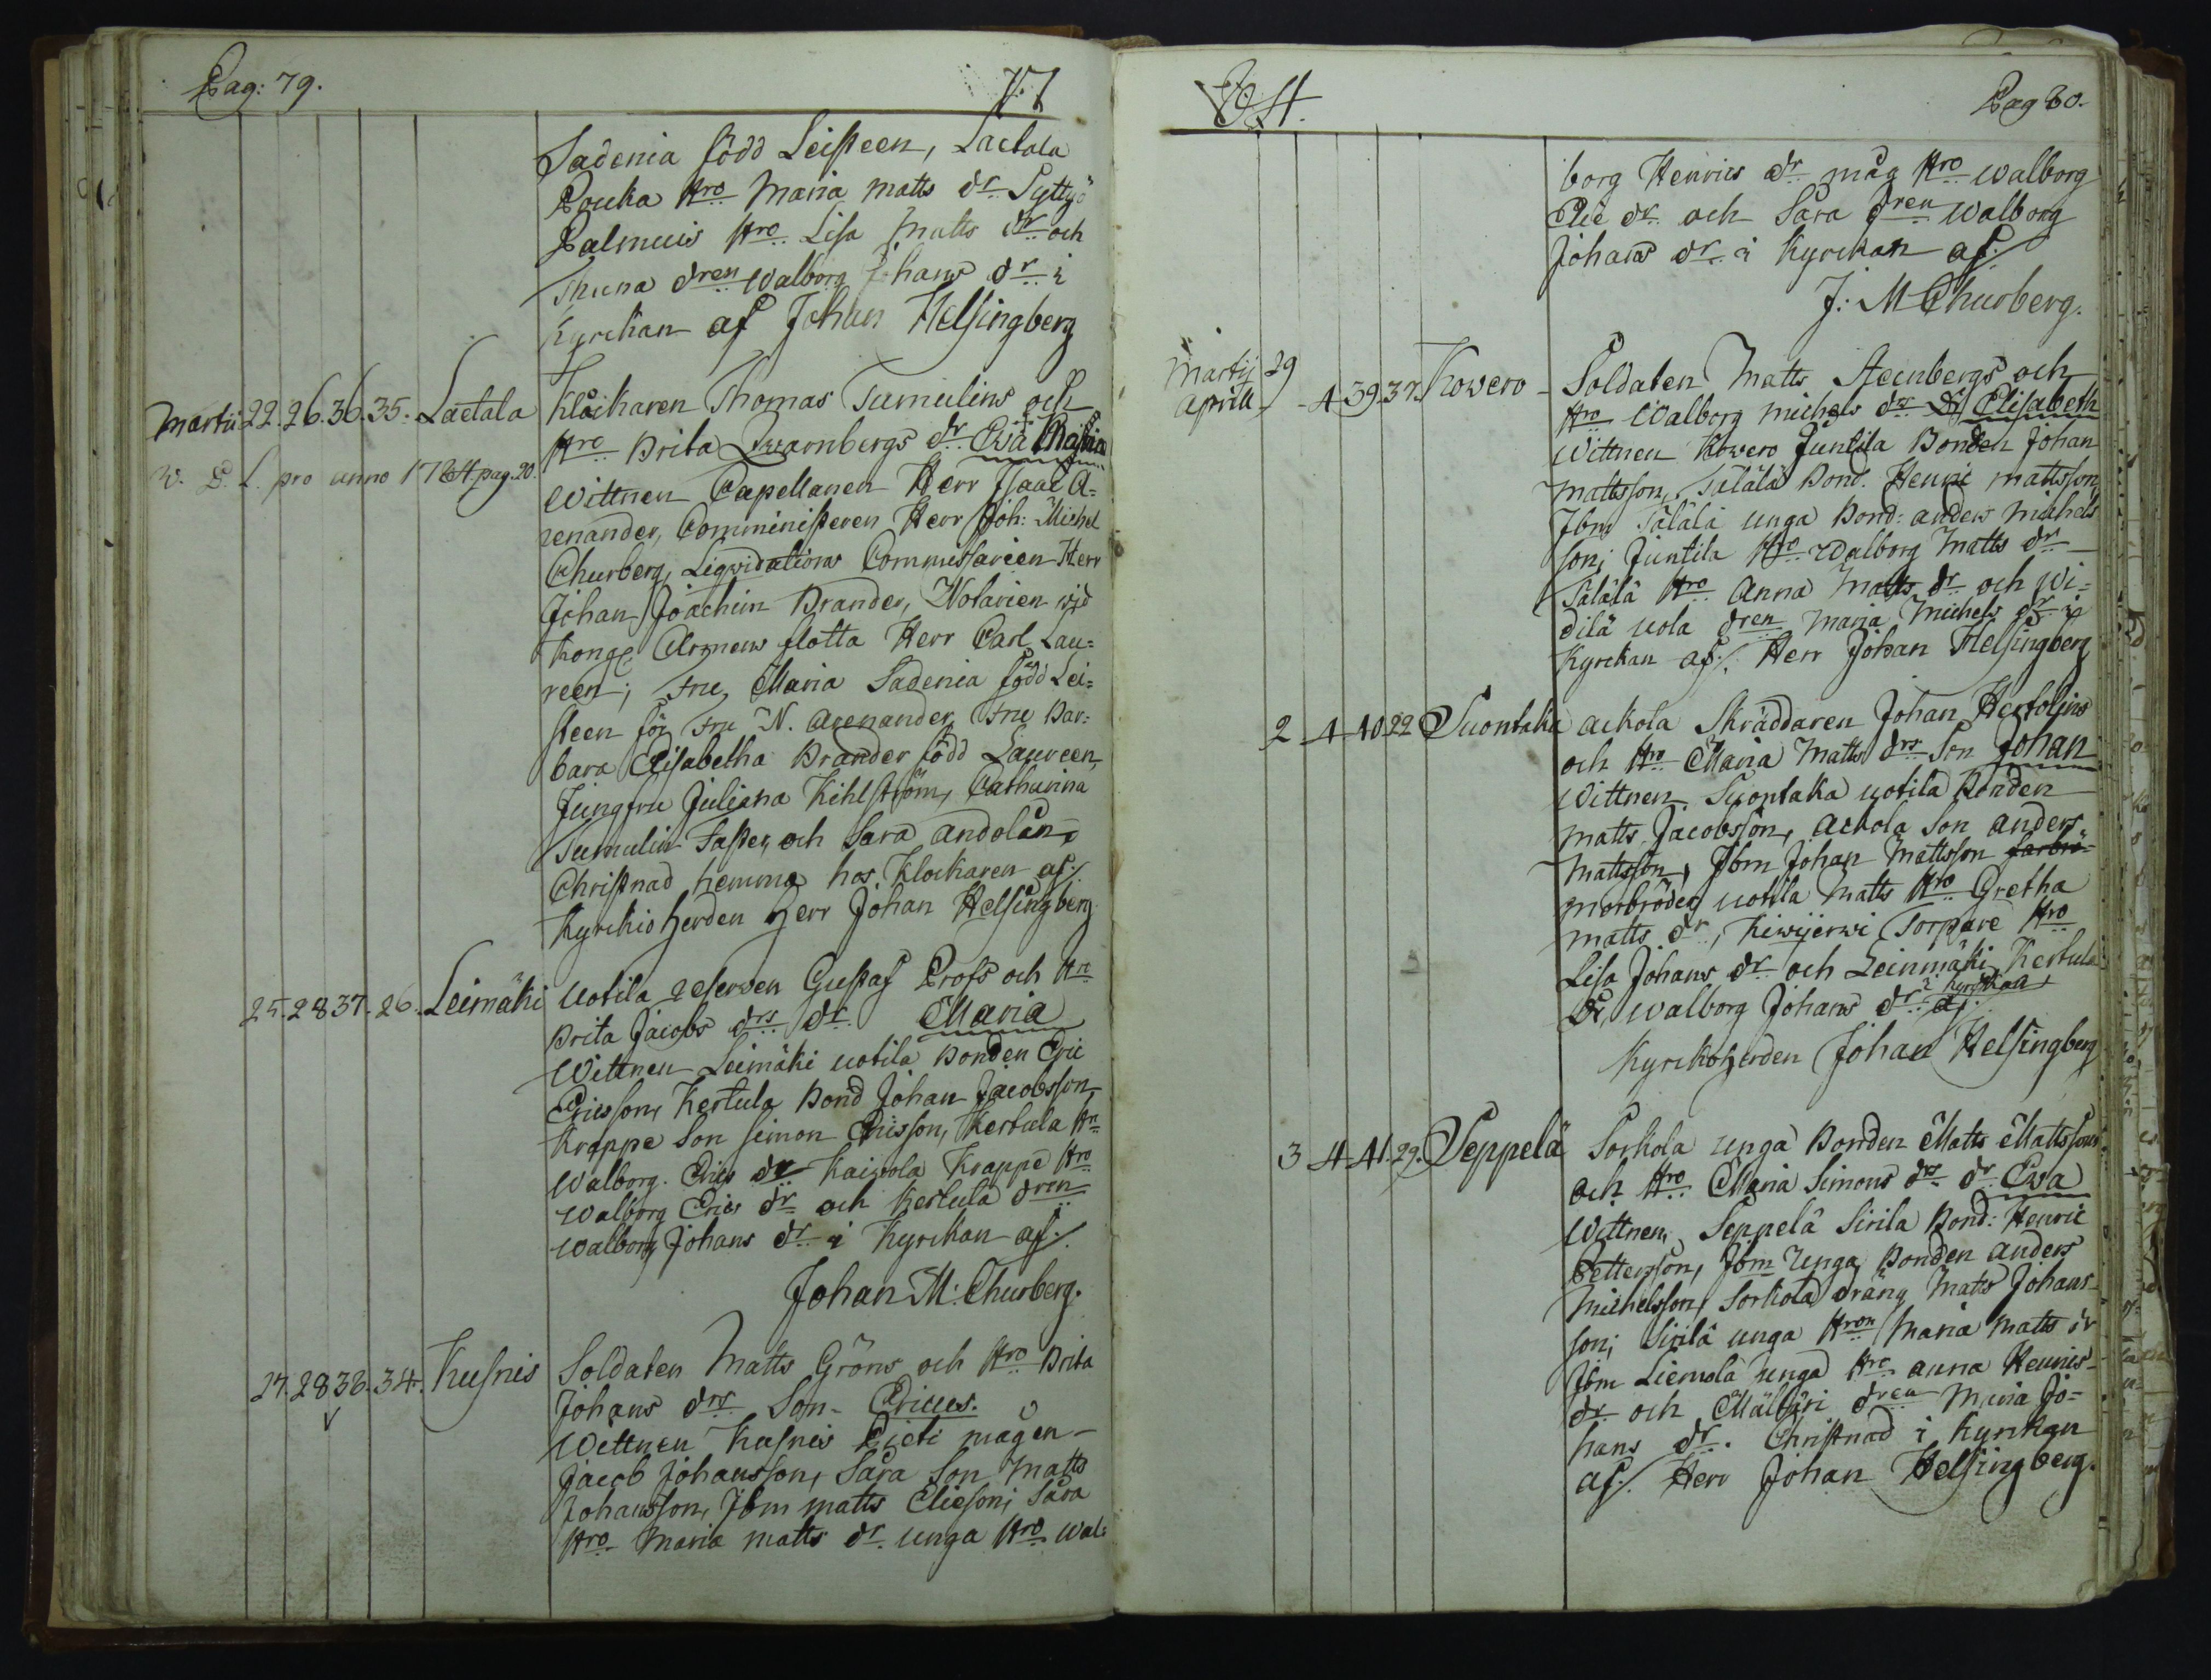 Pag: 79.
17
Sadenia född Leisteen, Laetala
Pouka Hro Maria Matts dr Syttyö
Palmuis Hro Lisa Matts dr och
Thuna dren Walborg Johans dr i
Kyrckan af Johan Helsingberg
Martii 22. 26. 36. 35. Laetala Klåckaren Thomas Tumulins och
Hro Brita Qwarnbergs dr Eva Maria
v. L. pro anno 1784. pag. 20.
Wittnen Capellanen Herr Isaac A=
renander, Comministeren Herr Joh: Michel
Churberg, Liqvidations Commissarien Herr
Johan Joachim Brander, Notarien wid
Kongl Armens flotta Herr Carl Lau=
reen; Fru Maria Sadenia född Lei=
steen för Fru N. Arenander, Fru Bar=
bara Elisabetha Brander född Laureen,
Jungfru Juliana Kihlström, Catharina
Tumulin Faster, och Sara Andolin
Christnad hemma hos Klockaren af
Kyrckioherden Herr Johan Helsingberg
25. 28 37. 26. Leimäki Uotila reserven Gustaf Profs och Hro
Brita Jacobs drs dr Maria
Wittnen Leimäki Uotila Bonden Eric
Ericsson, Kertula Bond Johan Jacobsson,
Krappe Son Simon Ericsson, Kertula Hro
Walborg Erics dr Kaivola Krappe Hro
Walborg Erics dr och Kertula dren
Walborg Johans dr i Kyrckan af
Johan M: Churberg.
27. 28 38. 34. Kusnis Soldaten Matts Gröns och Hro Brita
Johans drs Son Ericus.
Wittnen Kusnis Pieti mågen
Jacob Johansson, Sara Son Matts
Johansson, Ibm Matts Eliesson; Sara
Hro Maria Matts dr unga Hro Wal=
84.
Pag 80.
borg Henrics dr måg Hro Walborg
Elie dr och Sara dren Walborg
Johans dr i Kyrckan af
J: M Churberg.
Martij 29
Aprill 4 39. 37. Kowero Soldaten Matts Steenbergs och
Hro Walborg Michels drs dr Elisabeth
Wittnen Kowero Juntila Bonden Johan
Mattsson, Sälälä Bond. Henric Mattsson,
Ibm Sälälä unga Bond: Anders Michels
son; Juntila Hro Walborg Matts dr
Sälälä Hro Anna Matts dr och Wi=
dilä uola dren Maria Michels dr i
Kyrckan af Herr Johan Helsingberg
2 4 40. 22 Suontaka Ackola Skräddaren Johan Hertolins
och Hro Maria Matts drs Son Johan
Wittnen Suontaka Uotila Bonden
Matts Jacobsson, Ackola Son Anders
Mattsson, Ibm Johan Mattsson farbrö=
morbröder, Uotila Matts Hro Gretha
Matts dr, Kiwijerwi Torpare Hro
Lisa Johans dr och Leinmäki Kertula
Dr Walborg Johans dr i Kyrckan af
Kyrckoherden Johan Helsingberg
3 4 41. 29. Seppelä Sorkola unga Bonden Matts Mattssons
och Hro Maria Simons drs dr Eva
Wittnen, Seppelä Sirila Bond: Henric
Pettersson, Ibm Unga Bonden Anders
Michelsson, Sorkola dräng Matts Johans=
son; Sirilä unga Hron Maria Matts dr
Ibm Liemola unga Hro Anna Henrics
dr och Mälkäri dren Maria Jo=
hans dr. Christnad i Kyrckan
af Herr Johan Helsingberg.